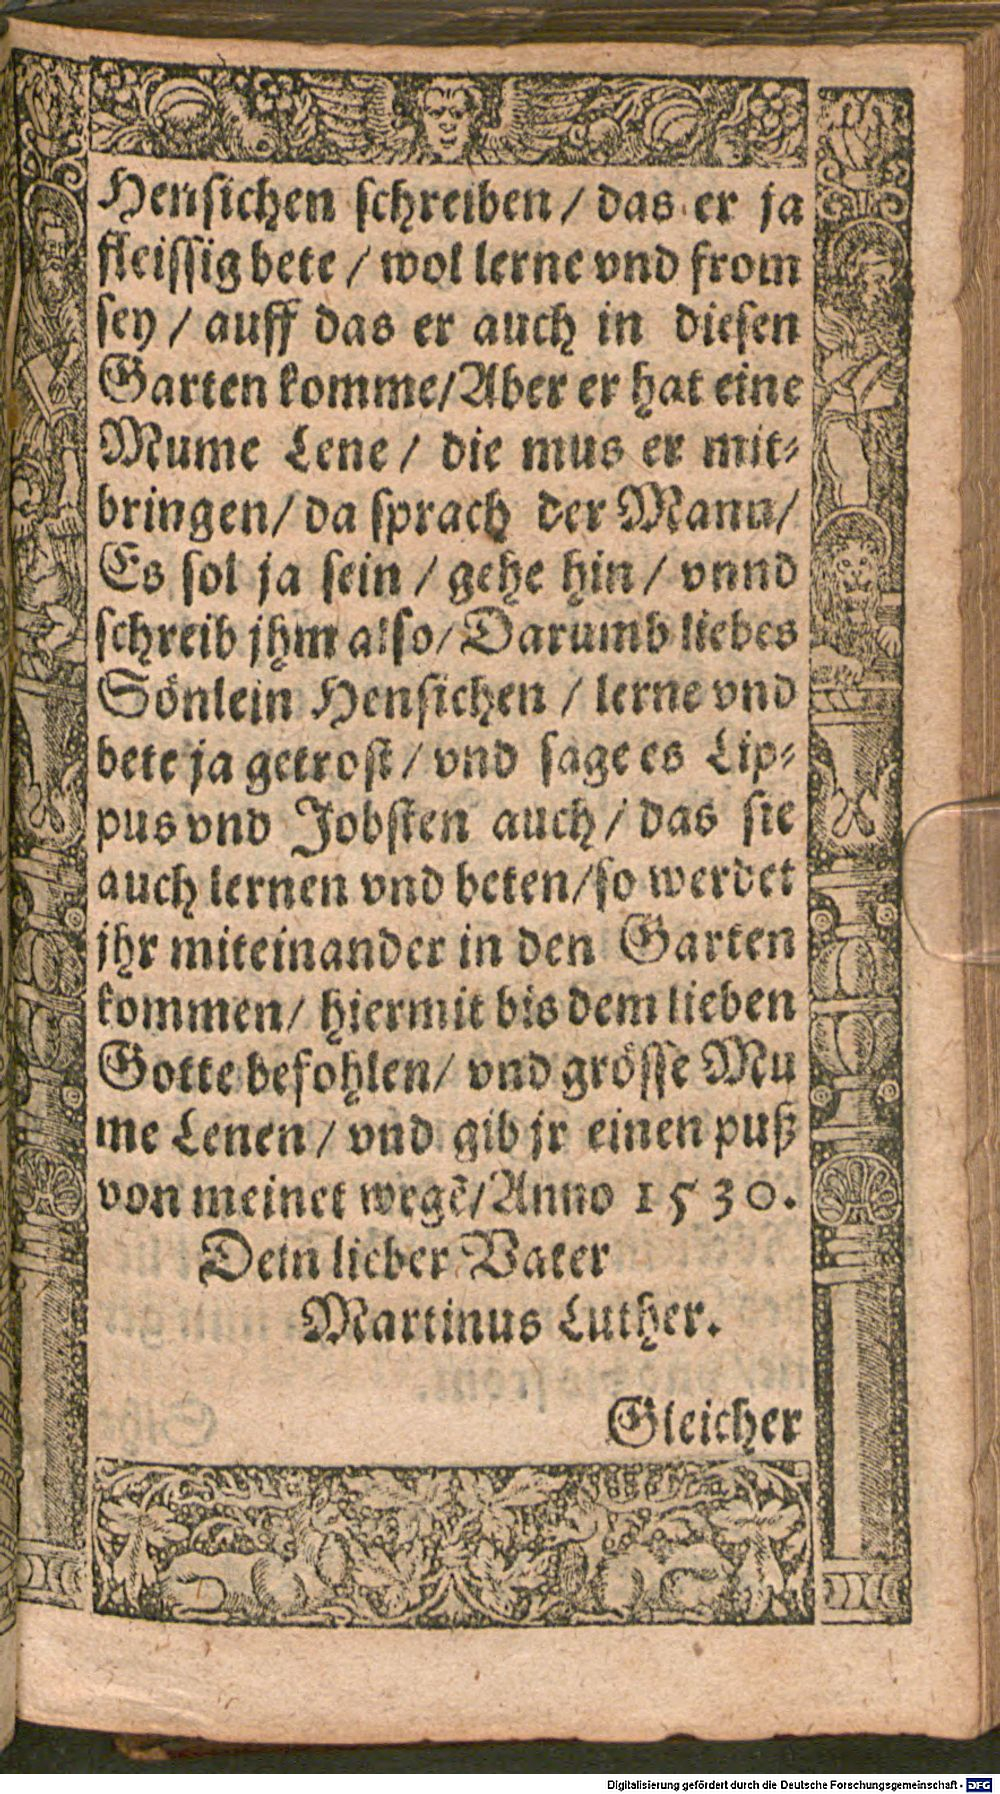 Hensichen schreiben / das er ja
fleissig bete / wol lerne vnd from
sey / auff das er auch in diesen
Garten komme/Aber er hat eine
Mume Lene / die mus er mit⸗
bringen/ da sprach der Mann/
Es sol ja sein / gehe hin / vnnd
schreib jhm also/ Darumb liebes
Sönlein Hensichen / lerne vnd
bete ja getrost / vnd sage es Lip⸗
pus vnd Jobsten auch / das sie
auch lernen vnd beten/so werdet
jhr miteinander in den Garten
kommen/ hiermit bis dem lieben
Gotte befohlen/ vnd grösse Mu
me Lenen / vnd gib jr einen puß
von meinet wegẽ/Anno 1530.
Dein lieber Vater
Martinus Luther.
Gleicher
Digitalisierung gefördert durch die Deutsche Forschungsgemeinschaft - DFG